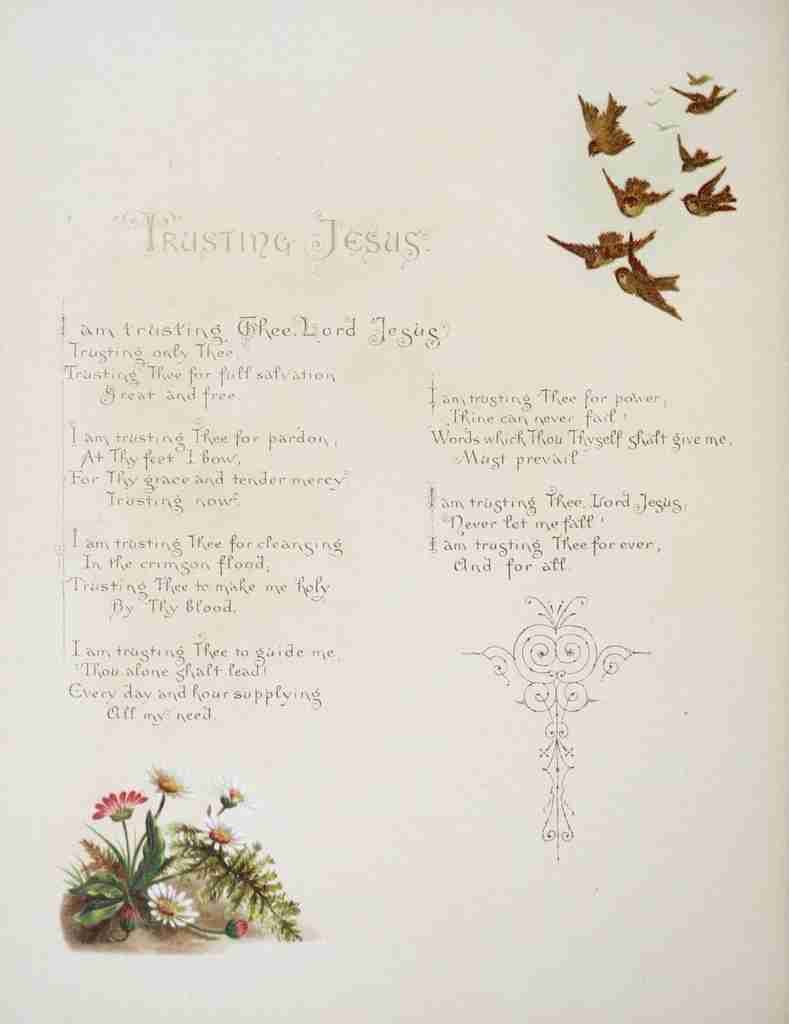 Trusting Jesus.
I am trusting Thee, Lord Jesus,
Trusting only Thee,
Trusting Thee for full salvation
Great and free.
I am trusting Thee for pardon,
At Thy feet I bow,
For Thy grace and tender mercy
Trusting now.
I am trusting Thee for cleansing
In the crimson flood,
Trusting Thee to make me holy
By Thy Blood.
I am trusting Thee to guide me,
Thou alone shalt lead!
Every day and hour supplying
All my need.
I am trusting Thee for power;
Thine can never fail!
Words which Thou Thyself shalt give me,
Must prevail
I am trusting Thee, Lord Jesus;
Never let me fall!
I am trusting Thee for ever,
And for all.